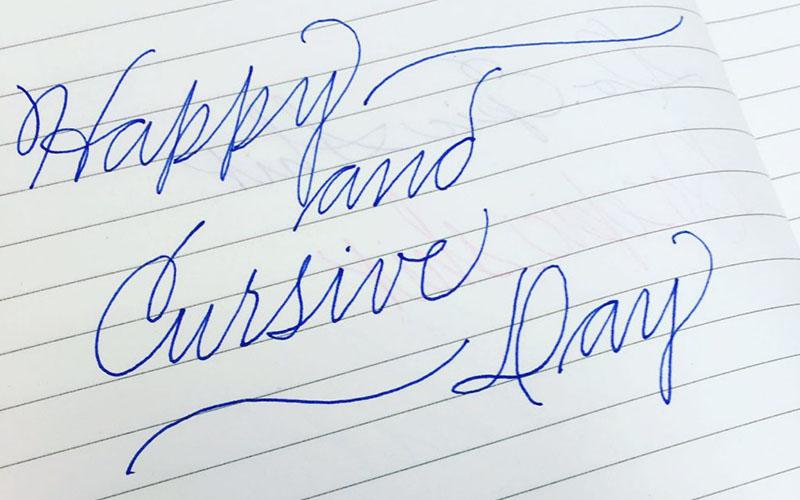 Happy
and
Cursive
Day